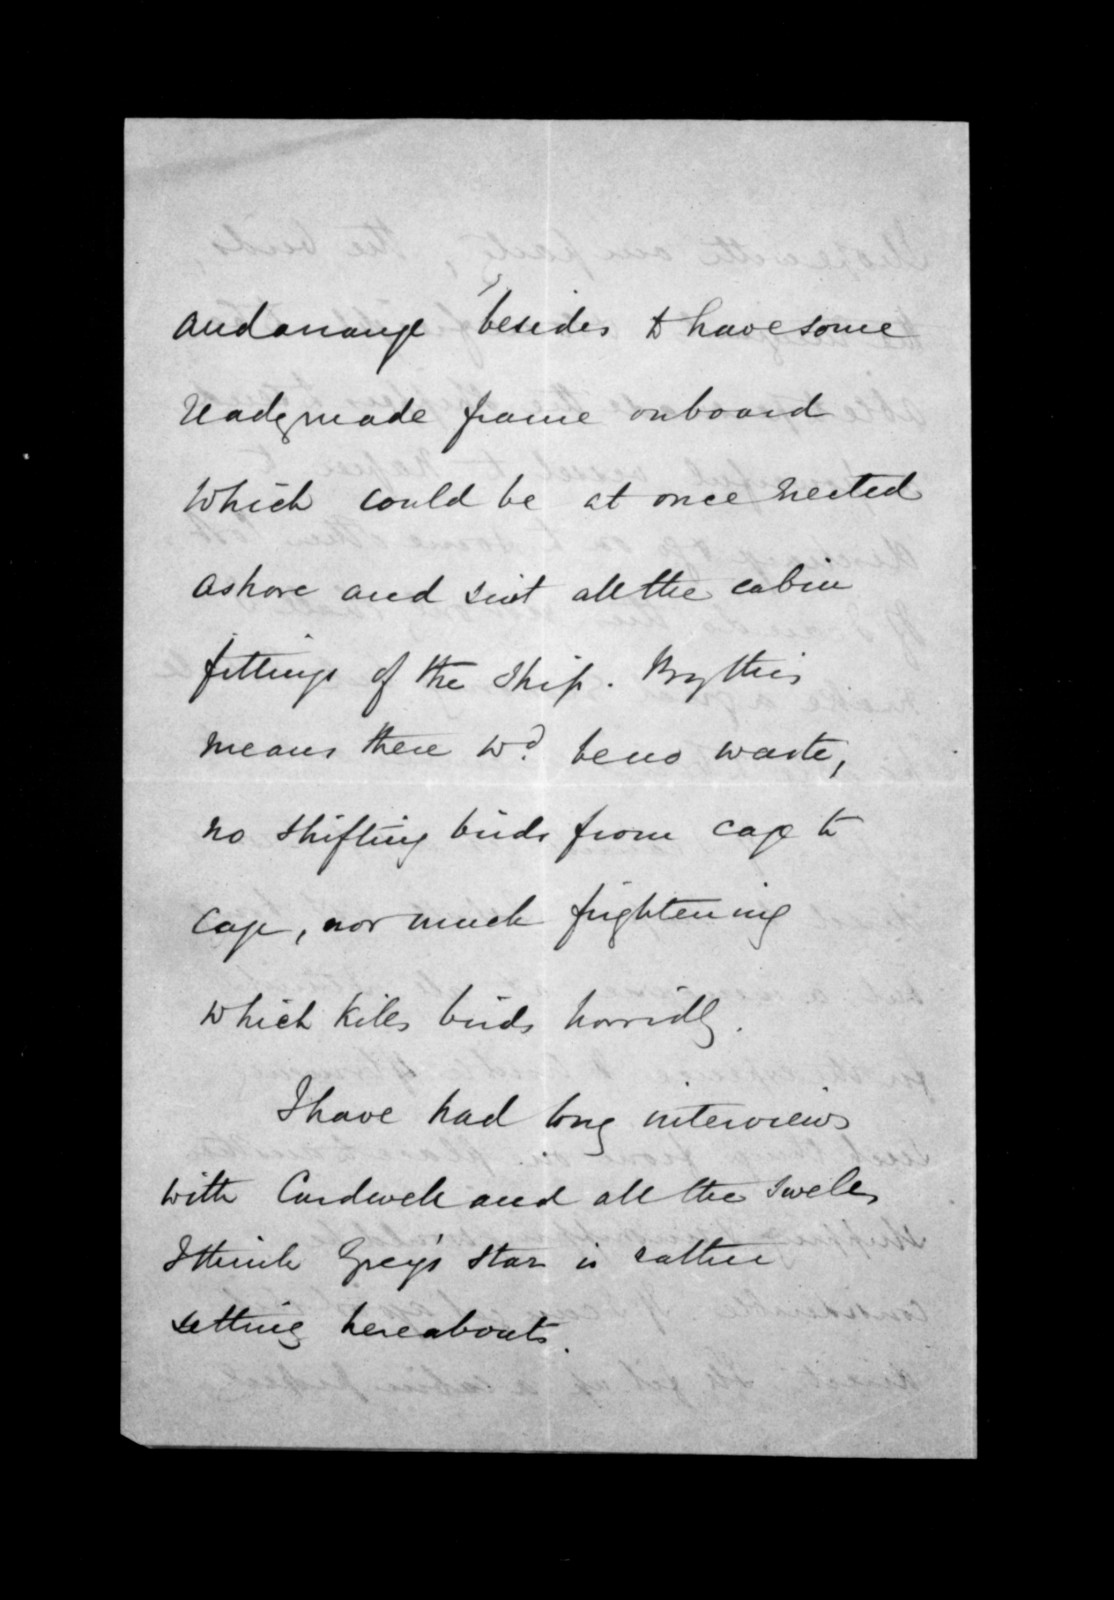 and arrange besides to have some
ready made frame onboard
which could be at once erected
ashore and suit all the cabin
fittings of the ship. By this
means there wd. be no waste,
no shifting birds from cage to
cage, nor much frightening
which kills birds horridly.
I have had long interviews
with Cardwell and all the swells,
I think Grey's star is rather
setting hereabouts.